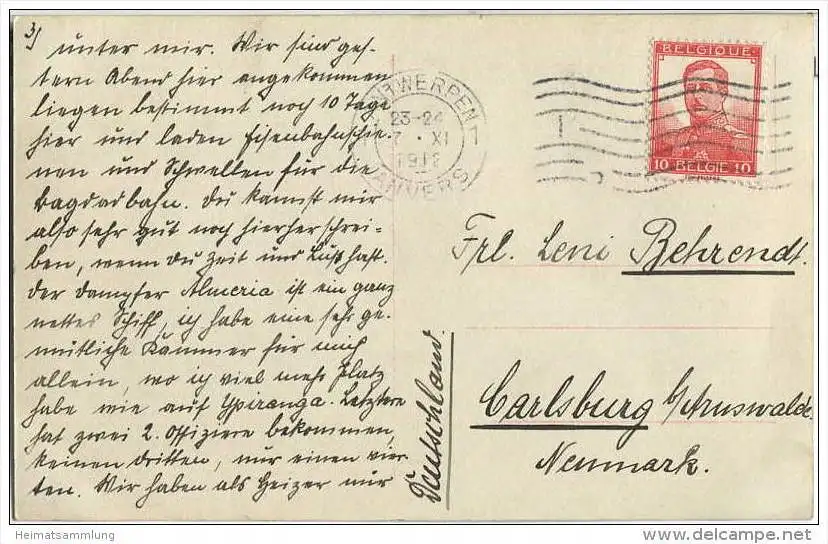 3)
unter mir. Wir sind ges-
tern Abend hier angekommen
liegen bestimmt noch 10 Tage
hier und laden Eisenbahnschie-
nen und Schwellen für die
Bagdadbahn. Du kannst mir
also sehr gut noch hierherschrei-
ben, wenn Du Zeit und Lust hast.
Der Dampfer Almeria ist ein ganz
nettes Schiff, ich habe eine sehr ge-
mütliche Kammer für mich
allein, wo ich viel mehr Platz
habe wie auf Ypiranga. Letztere
hat zwei 2. Offiziere bekommen,
keinen dritten, nur einen vier-
ten. Wir haben als Heizer nur
ANTWERPEN
23-24
7 · XI
1912
ANVERS
BELGIQUE
10 BELGIE 10
Frl. Leni Behrendt.
Carlsburg b/Arnswalde
Neumark.
Deutschland.
Heimatsammlung
www.delcampe.net